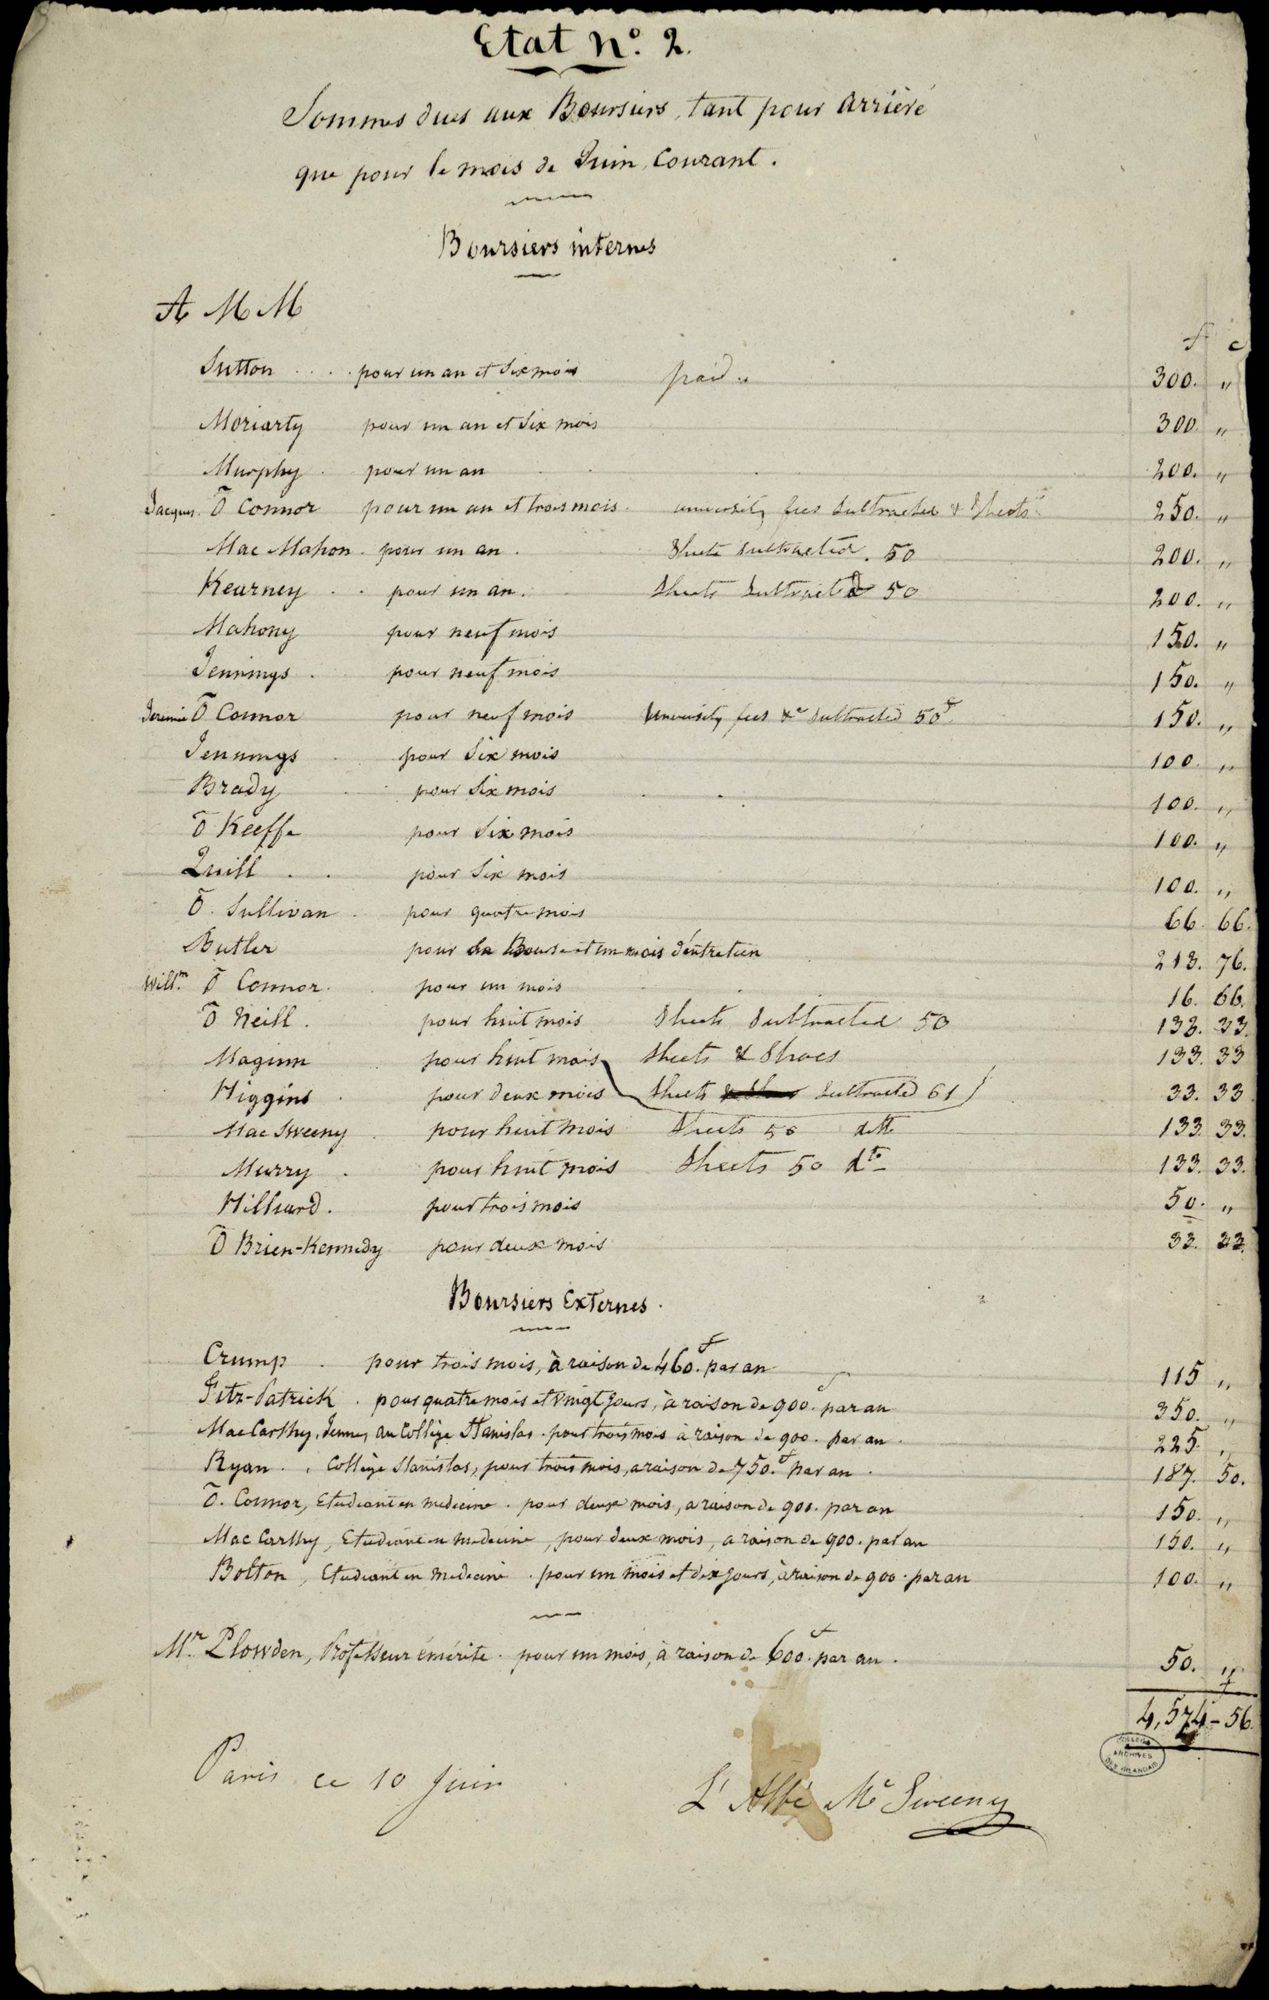 Etat N.º 2.
Sommes dues aux Boursiers, tant pour arriéré
que pour le mois de Juin Courant.
Boursiers internes
A M M
f c
Sutton . . . . pour un an et Six mois paid 300. "
Moriarty pour un an et Six mois 300. "
Murphy . pour un an 200. "
Jacques. O Connor pour un an et trois mois. university fees subtracted & Sheets 250. "
Mac Mahon . pour un an . Sheets subtracted. 50 200. "
Kearney . . pour un an . Sheets Subtracted 50 200. "
Mahony pour neuf mois 150. "
Jennings . pour neuf mois 150. "
Jeremie O Connor pour neuf mois University fees &c subtracted 50f 150. "
Jennings pour Six mois 100. "
Brady pour Six mois 100. "
O Keeffe pour Six mois 100. "
Quill . . pour Six mois 100. "
O. Sullivan . pour quatre mois 66. 66.
Butler pour Sa Bourse et un mois d'entretien 213. 76.
Willm. O Connor. pour un mois 16. 66.
O Neill . pour huit mois Sheets Subtracted 50 133. 33.
Maginn pour huit mois Sheets & Shoes 133. 33
Higgins . pour deux mois Sheets & Shoes subtracted 61 33. 33
Mac Sweeny . pour huit mois Sheets 50 ditto 133. 33.
Murry . pour huit mois Sheets 50 dto 133. 33.
Hilliard . pour trois mois 50. "
O Brien-Kennedy pour deux mois 33. 33.
Boursiers Externes.
Crump . pour trois mois, à raison de 460f. par an 115 "
Fitz-Patrick . pour quatre mois et vingt jours, à raison de 900f. par an 350. "
Mac Carthy, Jeune, au Collège Stanislas . pour trois mois à raison de 900. par an . 225. "
Ryan . . Collège Stanislas, pour trois mois, a raison de 750.f par an . 187. 50.
O. Connor, Etudiant en medecine . pour deux mois, a raison de 900. par an 150. "
Mac Carthy, Etudiant en medecine, pour deux mois, a raison de 900. par an 150. "
Bolton, Etudiant en medecine . pour un mois et dix jours, à raison de 900. par an 100. "
Mr. Plowden, Professeur émérite . pour un mois, à raison de 600f. par an . 50. "
4,574-56.
COLLEGE
ARCHIVES
DES IRLANDAIS
Paris ce 10 Juin
L'Abbé Mc Sweeny